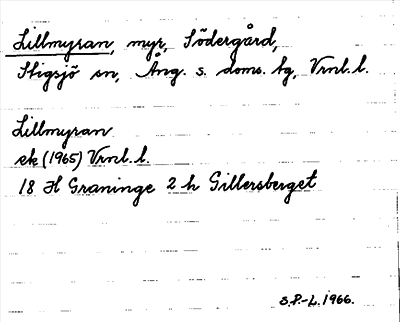 Lillmyran, myr, Södergård,
Stigsjö sn, Ång. s. doms. tg, Vrnl. l.
Lillmyran
ek (1965) Vrnl. l.
18 H Graninge 2 h Gillersberget
S.P.-L. 1966.